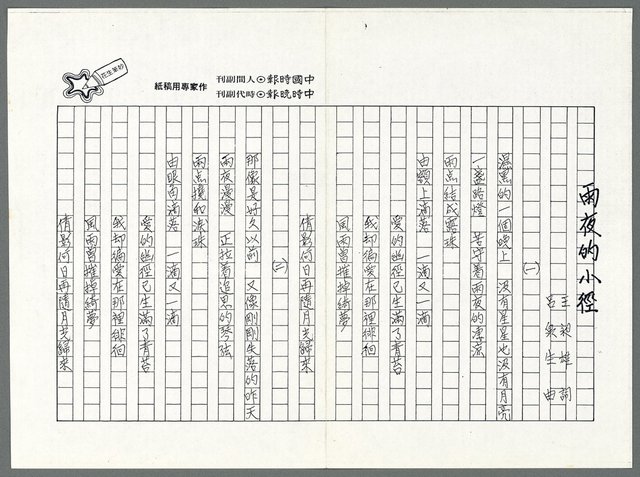 中國時報⊙人間副刊
中時晚報⊙時代副刊
作家專用稿紙
妙筆生花
雨夜的小徑
王昶雄 詞
呂泉生 曲
(一)
濕黑的一個晚上 沒有星星也沒有月亮
一盞路燈 苦守着雨夜的淒涼
雨点結成露珠
由頰上滴落 一滴又一滴
愛的幽徑已生滿了青苔
我却徧愛在那裡徘徊
風雨曾摧掉綺夢
倩影何日再隨月光歸來
(二)
那像是好久以前 又像剛剛失落的昨天
雨夜漫漫 正拉着追思的琴弦
雨点攙和淚珠
由眼角滴落 一滴又一滴
愛的幽徑已生滿了青苔
我却徧愛在那裡徘徊
風雨曾摧掉綺夢
倩影何日再隨月光歸來